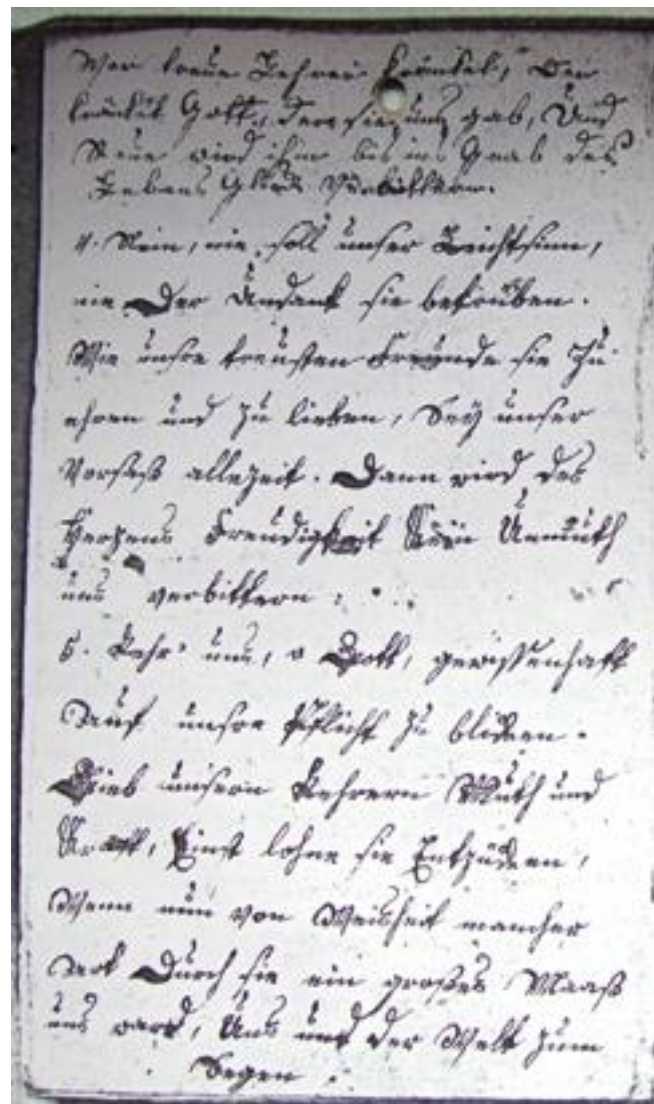 Wer treue Lehrer kränket, Der
kränket Gott, der sie uns gab, Und
Reue wird ihm bis ins Grab des
Lebens Glück verbittern.
4. Nein, nie soll unser Leichtsinn,
nie Der Undank sie betrüben.
Wie unsre treusten Freunde sie zu
ehren und zu lieben, Sey unser
Vorsatz allezeit. Dann wird des
Herzens Freudigkeit Kein Unmuth
uns verbittern.
5. Lehr' uns, o Gott, gewissenhaft
Auf unsre Pflicht zu blicken.
Gieb unsern Lehrern Muth und
Kraft, Einst lohne sie Entzücken,
Wenn nun von Weisheit mancher
Art Durch sie ein großes Maaß
uns ward, Uns und der Welt zum
Segen.